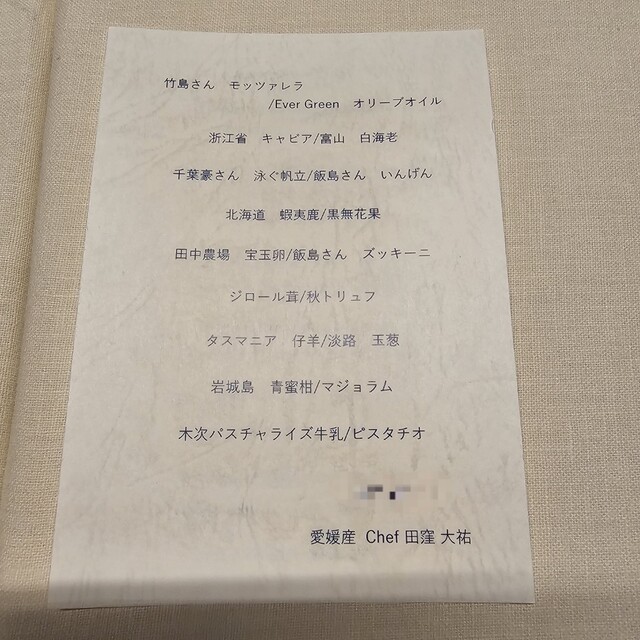 竹島さん　モッツァレラ
/Ever Green　オリーブオイル
浙江省　キャビア/富山　白海老
千葉豪さん　泳ぐ帆立/飯島さん　いんげん
北海道　蝦夷鹿/黒無花果
田中農場　宝玉卵/飯島さん　ズッキーニ
ジロール茸/秋トリュフ
タスマニア　仔羊/淡路　玉葱
岩城島　青蜜柑/マジョラム
木次パスチャライズ牛乳/ピスタチオ
愛媛産 Chef 田窪 大祐